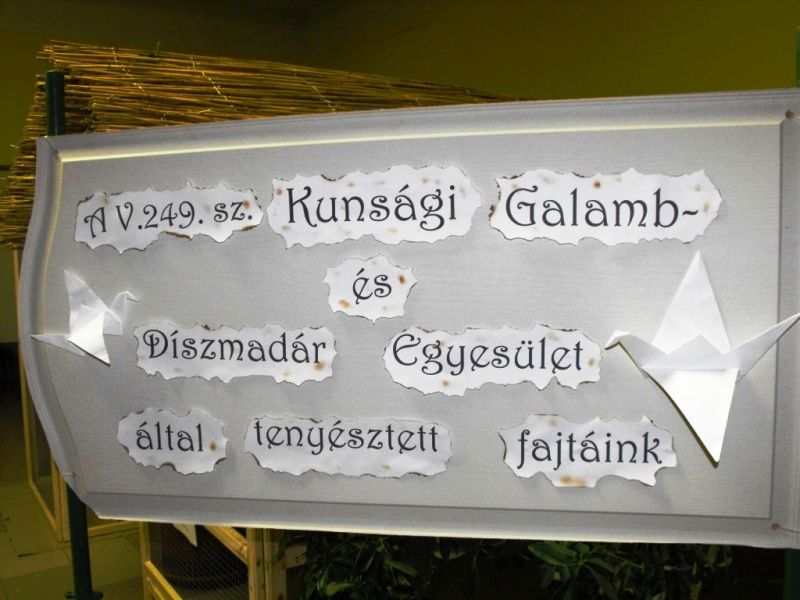 A V.249. sz. Kunsági Galamb-
és
Díszmadár Egyesület
által tenyésztett fajtáink